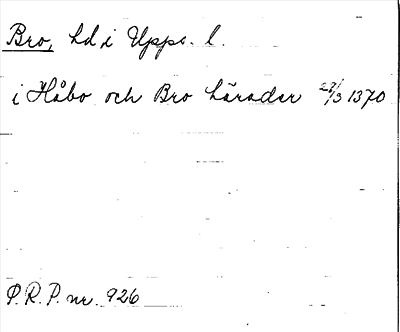 Bro, hd i Upps. l.
i Håbo och Bro härader 27/3 1370
P.R.P. nr. 926